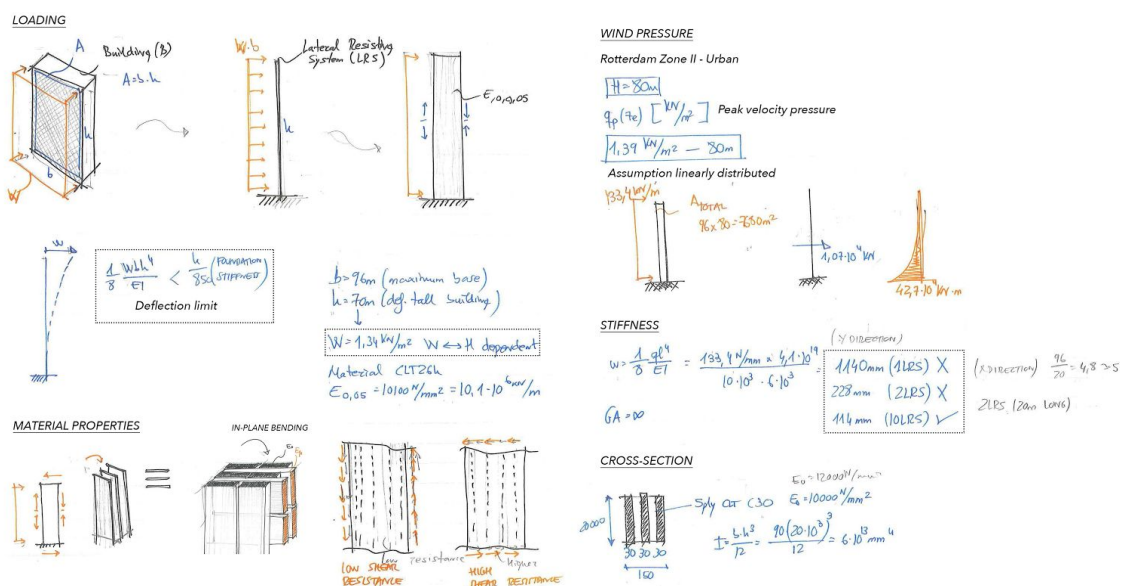 LOADING
A
Building (B)
A=b·h
h
b
W
W·b
Lateral Resisting
System (LRS)
h
E,0,0,05
w
1/8 Wbh⁴/EI < h/850 (FOUNDATION STIFFNESS)
Deflection limit
b=96m (maximum base)
h=70m (def. tall building)
W=1,34 kN/m² W ↔ H dependent
Material CLT26h
E0,05 =10100 N/mm² =10,1·10⁶ kN/m
MATERIAL PROPERTIES
IN-PLANE BENDING
E₀
=
Low
resistance
higher
LOW SHEAR
RESISTANCE
HIGH
SHEAR RESISTANCE
WIND PRESSURE
Rotterdam Zone II - Urban
H=80m
qp(ze) [kN/m²] Peak velocity pressure
1,39 kN/m² — 80m
Assumption linearly distributed
133,4 kN/m
ATOTAL
96 x 80 = 7680m²
1,07·10⁴ kN
42,7·10⁴ kN·m
STIFFNESS
(Y DIRECTION)
w= 1/8 ql⁴/EI = 133,4 N/mm x 4,1·10¹⁹ / 10·10³ · 6·10¹³ =
1140mm (1LRS) X
228mm (2LRS) X
114mm (10LRS) ✓
(X DIRECTION) 96/20 = 4,8 ≥ 5
2LRS (20m LONG)
GA=∞
CROSS-SECTION
E₀=12000 N/mm²
5ply CLT C30 E₀=10000 N/mm²
20000
I= b·h³/12 = 90(20·10³)³/12 = 6·10¹³ mm⁴
30 30 30
150